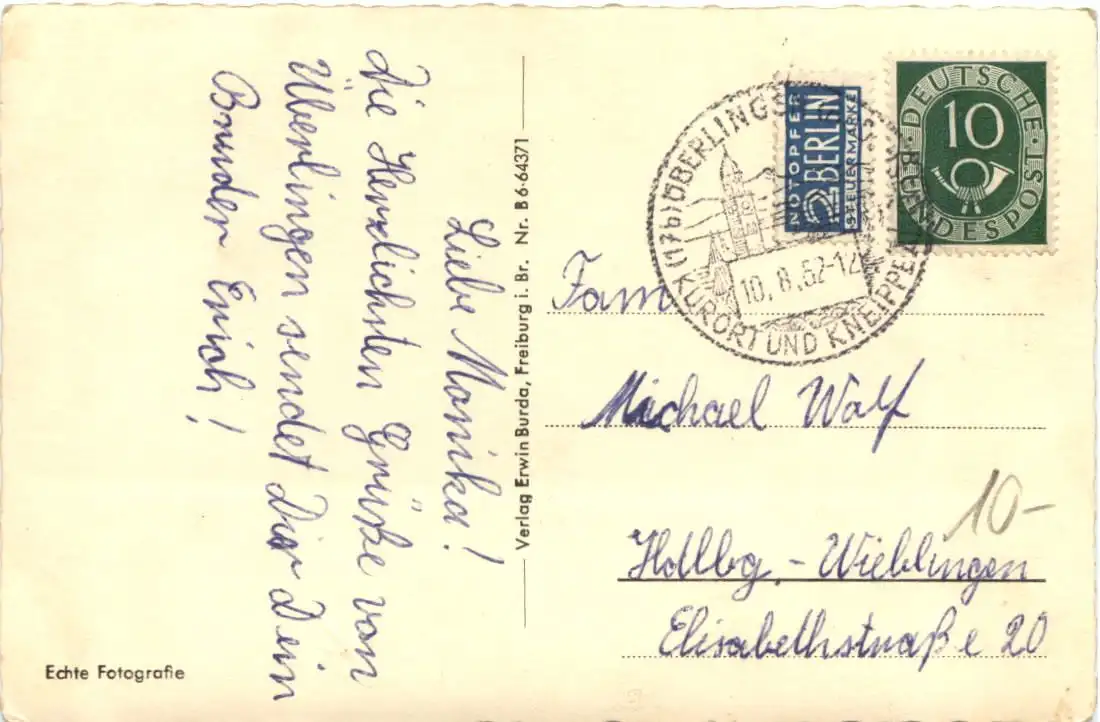 Liebe Monika!
Die Herzlichsten Grüße von
Überlingen sendet Dir Dein
Bruder Erich!
Echte Fotografie
Verlag Erwin Burda, Freiburg i. Br. Nr. B 6-64371
(17b) ÜBERLINGEN
10.8.52-12
KURORT UND
NOTOPFER
2 BERLIN
STEUERMARKE
DEUTSCHE BUNDESPOST
10
Fam
Michael Wolf
10-
Hdlbg.-Wieblingen
Elisabethstraße 20